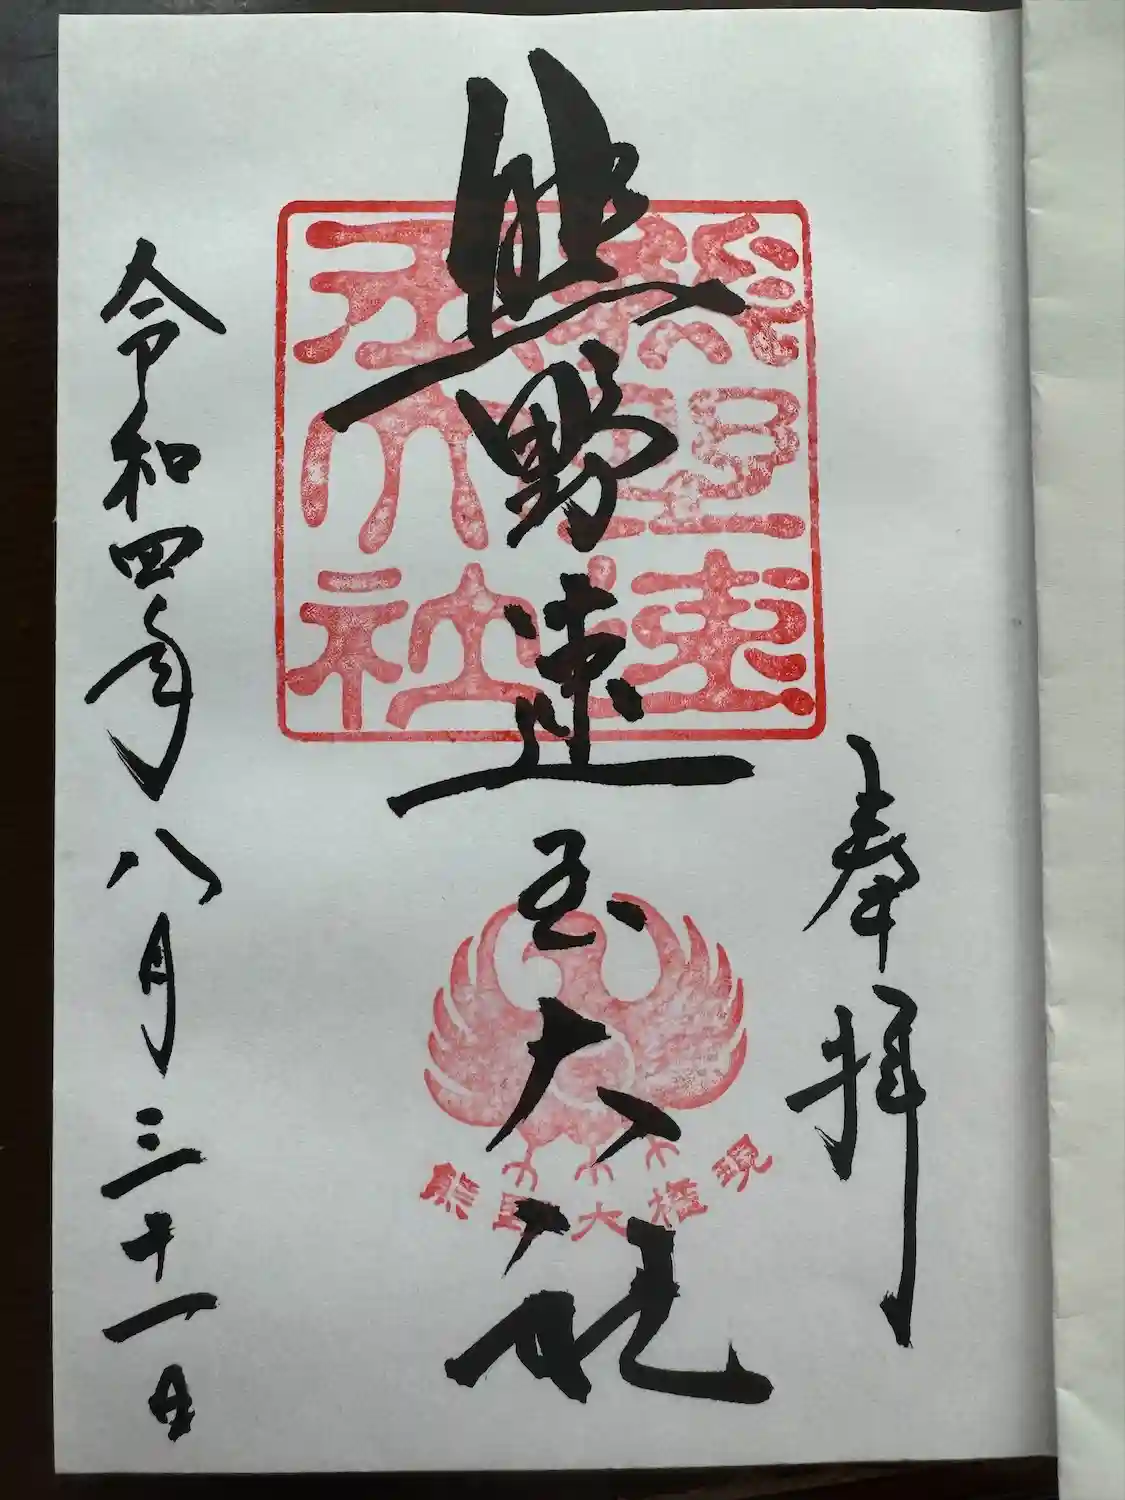 奉拝
熊野速玉大社
熊野速
玉大社
熊野大権現
令和四年八月三十一日